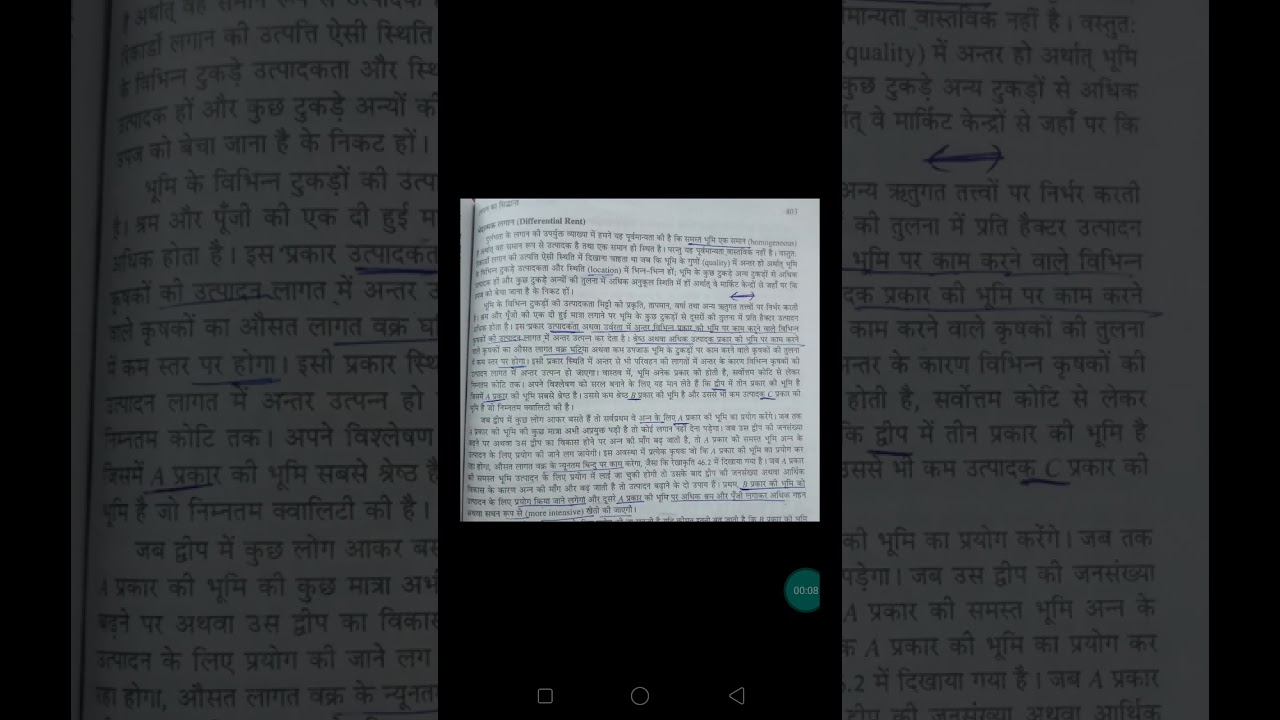 लगान का सिद्धान्त 403
लगान (Differential Rent)
दुर्लभता के लगान की उपर्युक्त व्याख्या में हमने यह पूर्वमान्यता की है कि समस्त भूमि एक समान (homogeneous)
है अर्थात् वह समान रूप से उत्पादक है तथा एक समान ही स्थित है। परन्तु यह पूर्वमान्यता वास्तविक नहीं है। वस्तुत:
रिकार्डो लगान की उत्पत्ति ऐसी स्थिति में दिखाना चाहता था जब कि भूमि के गुणों (quality) में अन्तर हो अर्थात् भूमि
के विभिन्न टुकड़े उत्पादकता और स्थिति (location) में भिन्न-भिन्न हों; भूमि के कुछ टुकड़े अन्य टुकड़ों से अधिक
उत्पादक हों और कुछ टुकड़े अन्यों की तुलना में अधिक अनुकूल स्थिति में हों अर्थात् वे मार्किट केन्द्रों से जहाँ पर कि
उपज को बेचा जाना है के निकट हों।
भूमि के विभिन्न टुकड़ों की उत्पादकता मिट्टी की प्रकृति, तापमान, वर्षा तथा अन्य ऋतुगत तत्त्वों पर निर्भर करती
है। श्रम और पूँजी की एक दी हुई मात्रा लगाने पर भूमि के कुछ टुकड़ों से दूसरों की तुलना में प्रति हैक्टर उत्पादन
अधिक होता है। इस प्रकार उत्पादकता अथवा उर्वरता में अन्तर विभिन्न प्रकार की भूमि पर काम करने वाले विभिन्न
कृषकों की उत्पादन लागत में अन्तर उत्पन्न कर देता है। श्रेष्ठ अथवा अधिक उत्पादक प्रकार की भूमि पर काम करने
वाले कृषकों का औसत लागत वक्र घटिया अथवा कम उपजाऊ भूमि के टुकड़ों पर काम करने वाले कृषकों की तुलना
में कम स्तर पर होगा। इसी प्रकार स्थिति में अन्तर से भी परिवहन की लागतों में अन्तर के कारण विभिन्न कृषकों की
उत्पादन लागत में अन्तर उत्पन्न हो जाएगा। वास्तव में, भूमि अनेक प्रकार की होती है, सर्वोत्तम कोटि से लेकर
निम्नतम कोटि तक। अपने विश्लेषण को सरल बनाने के लिए यह मान लेते हैं कि द्वीप में तीन प्रकार की भूमि है
जिसमें A प्रकार की भूमि सबसे श्रेष्ठ है। उससे कम श्रेष्ठ B प्रकार की भूमि है और उससे भी कम उत्पादक C प्रकार की
भूमि है जो निम्नतम क्वालिटी की है।
जब द्वीप में कुछ लोग आकर बसते हैं तो सर्वप्रथम वे अन्न के लिए A प्रकार की भूमि का प्रयोग करेंगे। जब तक
A प्रकार की भूमि की कुछ मात्रा अभी अप्रयुक्त पड़ी है तो कोई लगान नहीं देना पड़ेगा। जब उस द्वीप की जनसंख्या
बढ़ने पर अथवा उस द्वीप का विकास होने पर अन्न की माँग बढ़ जाती है, तो A प्रकार की समस्त भूमि अन्न के
उत्पादन के लिए प्रयोग की जाने लग जायेगी। इस अवस्था में प्रत्येक कृषक जो कि A प्रकार की भूमि का प्रयोग कर
रहा होगा, औसत लागत वक्र के न्यूनतम बिन्दु पर काम करेगा, जैसा कि रेखाकृति 46.2 में दिखाया गया है। जब A प्रकार
की समस्त भूमि उत्पादन के लिए प्रयोग में लाई जा चुकी होगी तो उसके बाद द्वीप की जनसंख्या अथवा आर्थिक
विकास के कारण अन्न की माँग और बढ़ जाती है तो उत्पादन बढ़ाने के दो उपाय हैं। प्रथम, B प्रकार की भूमि को
उत्पादन के लिए प्रयोग किया जाने लगेगा और दूसरे A प्रकार की भूमि पर अधिक श्रम और पूँजी लगाकर अधिक गहन
अथवा सघन रूप से (more intensive) खेती की जाएगी।
00:08